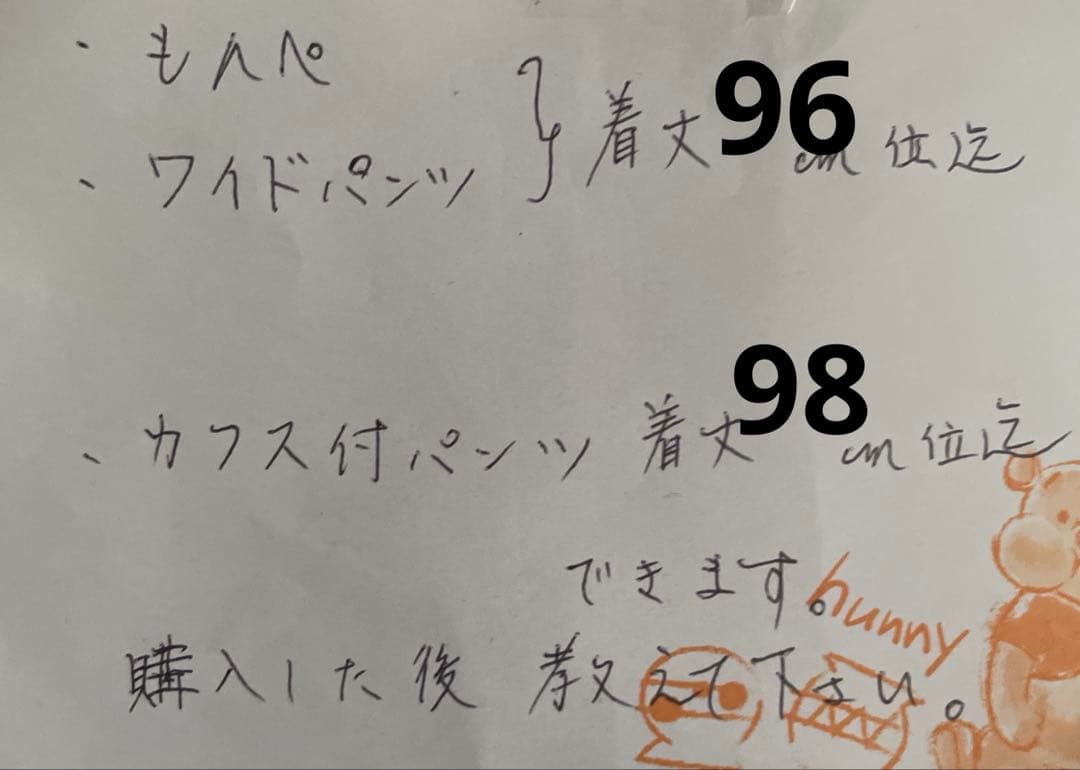 ・もんぺ
・ワイドパンツ } 着丈96cm位迄
・カフス付パンツ 着丈98cm位迄
できます。
hunny
購入した後 教えて下さい。